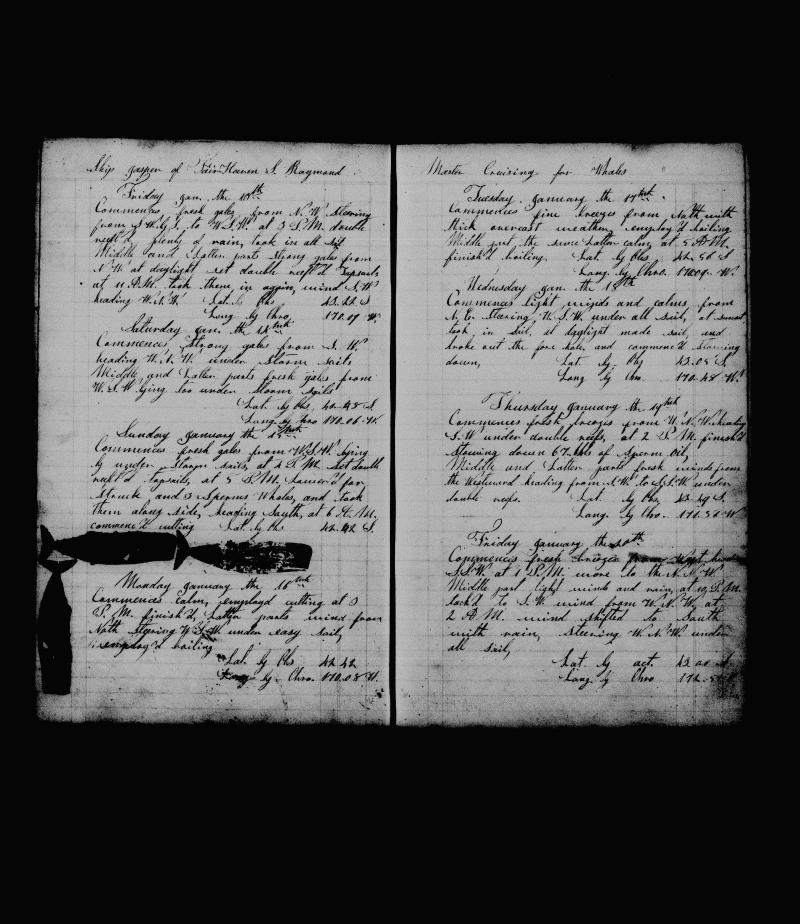 Ship Jasper of FairHaven S. Raymond
Friday Jan. the 13th
Commences fresh gales from N.W. Steering
from S.W.G.S. to W.S.W. at 3 P.M. double
reef'd plenty of rain, took in all sail
Middle and Latter parts Strong gales from
N.W. at daylight set double reef'd Topsails
at 11 A.M. took them in again, wind S.W.
heading W.N.W. Lat. by Obs 42.22 S
Long by Chro. 170.09 W.
Saturday Jan. the 14th
Commences Strong gales from S. W.
heading W.N.W. under Storm sails
Middle, and Latter parts fresh gales from
W.S.W. lying too under Storm Sails
Lat. by Obs, 42.48 S
Long. by Chro 170.06 W.
Sunday January the 15th
Commences fresh gales from W.S.W. lying
by under Storm sails, at 4 P.M. Set double
reef'd topsails, at 5 P.M. Lower'd for
Struck and 3 Sperm Whales, and took
them along side, heading South, at 6 A.M.
commenc'd cutting Lat. by Obs 42.42 S.
Monday January the 16th
Commences calm, employd cutting at 3
P.M. finish'd, Latter parts wind from
Noth Steering W.S.W. under easy sail,
employ'd boiling
Lat. by Obs 42.42
Long by. Chro. 170.08 W.
Master Cruising for Whales
Tuesday January the 17th
Commences fine breezes from Noth with
thick overcast weather, employ'd boiling
Middle part the same Latter calm, at 5 A.M.
finish'd boiling. Lat. by Obs 42.56 S
Long. by Chro. 170.09. W.
Wednesday Jan. the 18th
Commences light winds and calms from
N.E. Steering W.S.W. under all sail, at sunset
took in sail. at daylight made sail, and
broke out the fore hole, and commenc'd Stowing
down, Lat. by Obs 43.08 S.
Long by Chro. 170.48 W.
Thursday January the 19th
Commences fresh breezes from W.N.W. heading
S.W. under double reefs, at 2 P.M. finish'd
Stowing down 67. bbls of Sperm Oil,
Middle and Latter parts fresh winds from
the Westward heading from S.W. to S.S.W. under
double reefs. Lat. by Obs, 43.49 S.
Long. by Chro. 171.52 W
Friday January the 20th
Commences fresh breezes from West
S.S.W. at 1 P.M. wore to the N.N.W.
Middle part light winds and rain, at 10 P.M.
tack'd to S.W. wind from W.N.W. at
2 A.M. wind shifted to South
with rain, Steering W.N.W. under
all sail,
Lat. by act. 43.20 S.
Long. by Chro